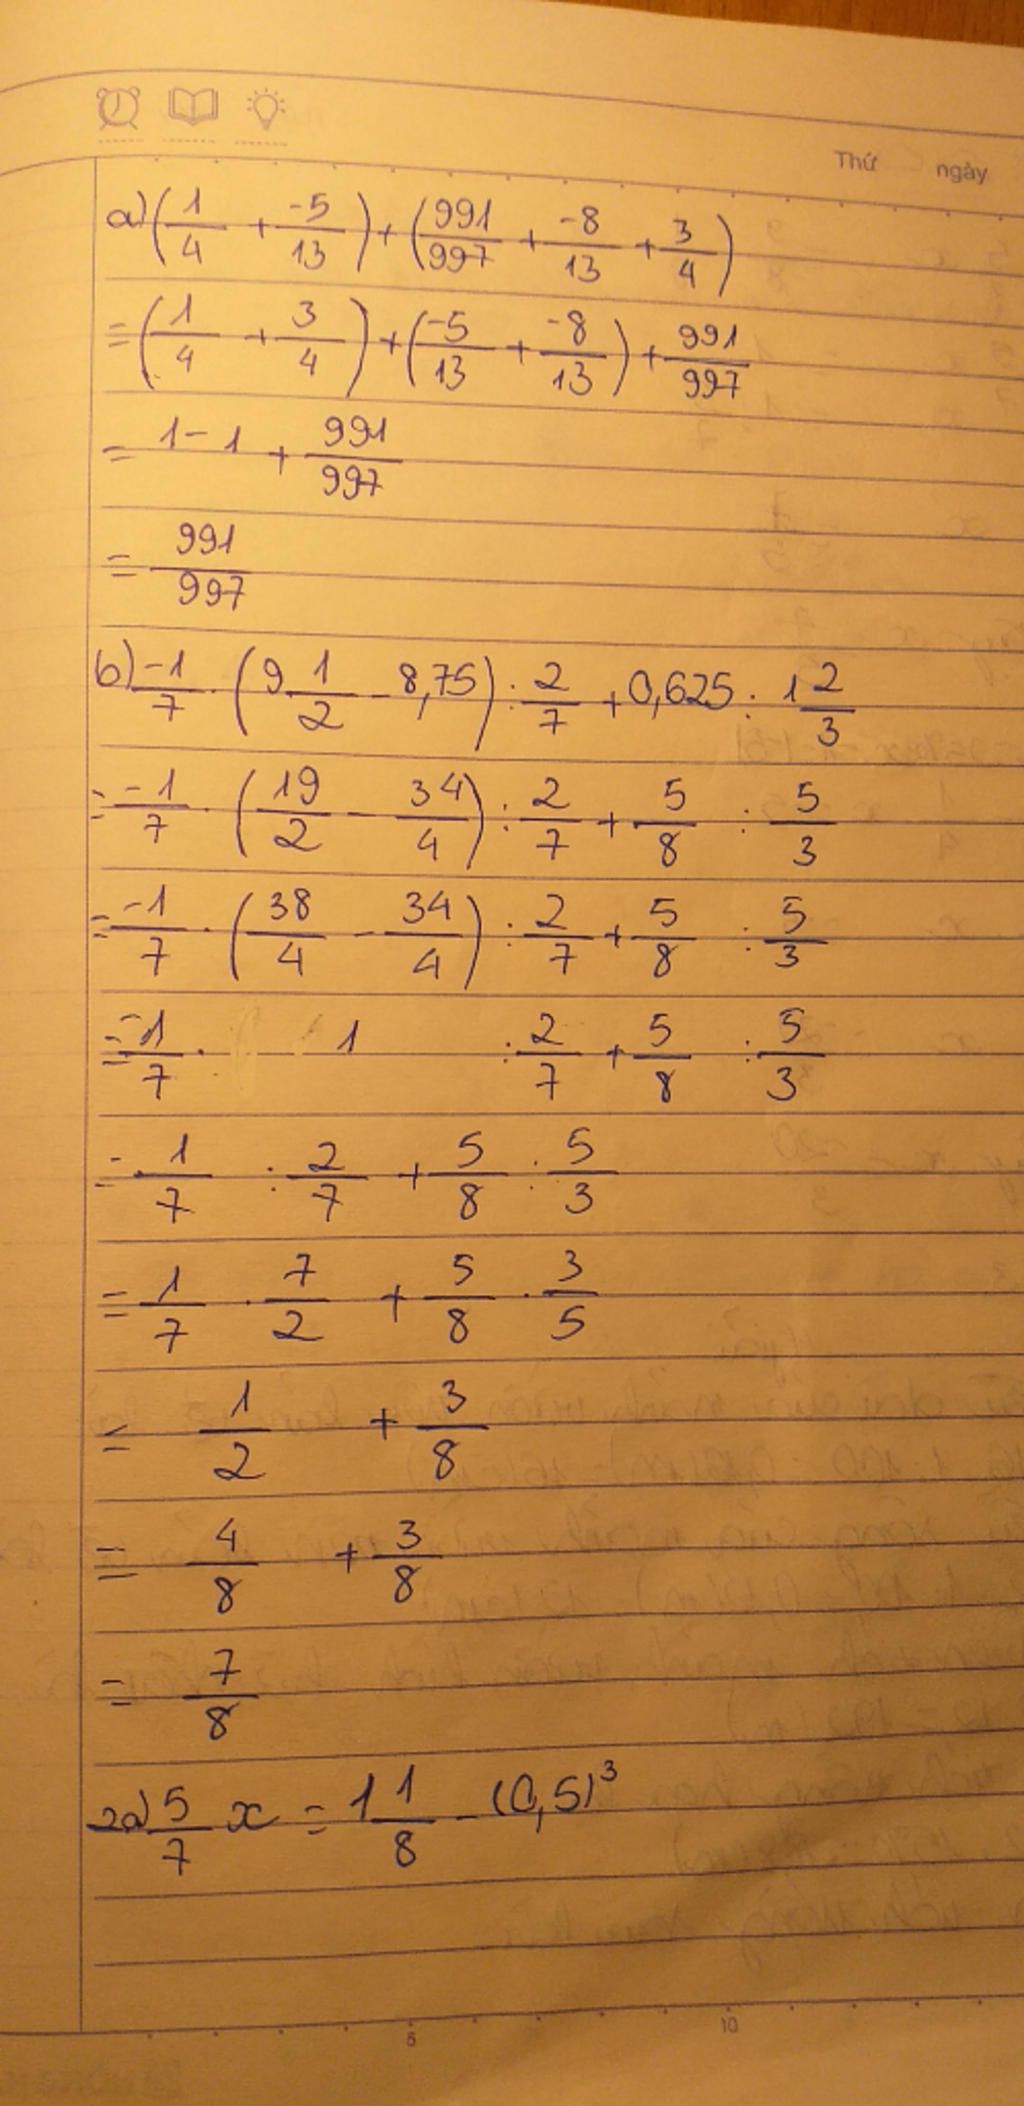 Thứ ngày
a) (1/4 + -5/13) + (991/997 + -8/13 + 3/4)
= (1/4 + 3/4) + (-5/13 + -8/13) + 991/997
= 1 - 1 + 991/997
= 991/997
b) -1/7 . (9 1/2 - 8,75) : 2/7 + 0,625 : 1 2/3
= -1/7 . (19/2 - 34/4) : 2/7 + 5/8 : 5/3
= -1/7 . (38/4 - 34/4) : 2/7 + 5/8 : 5/3
= -1/7 . 1 : 2/7 + 5/8 : 5/3
= 1/7 : 2/7 + 5/8 : 5/3
= 1/7 . 7/2 + 5/8 . 3/5
= 1/2 + 3/8
= 4/8 + 3/8
= 7/8
2a) 5/7 x = 1 1/8 - (0,5)³
5 10